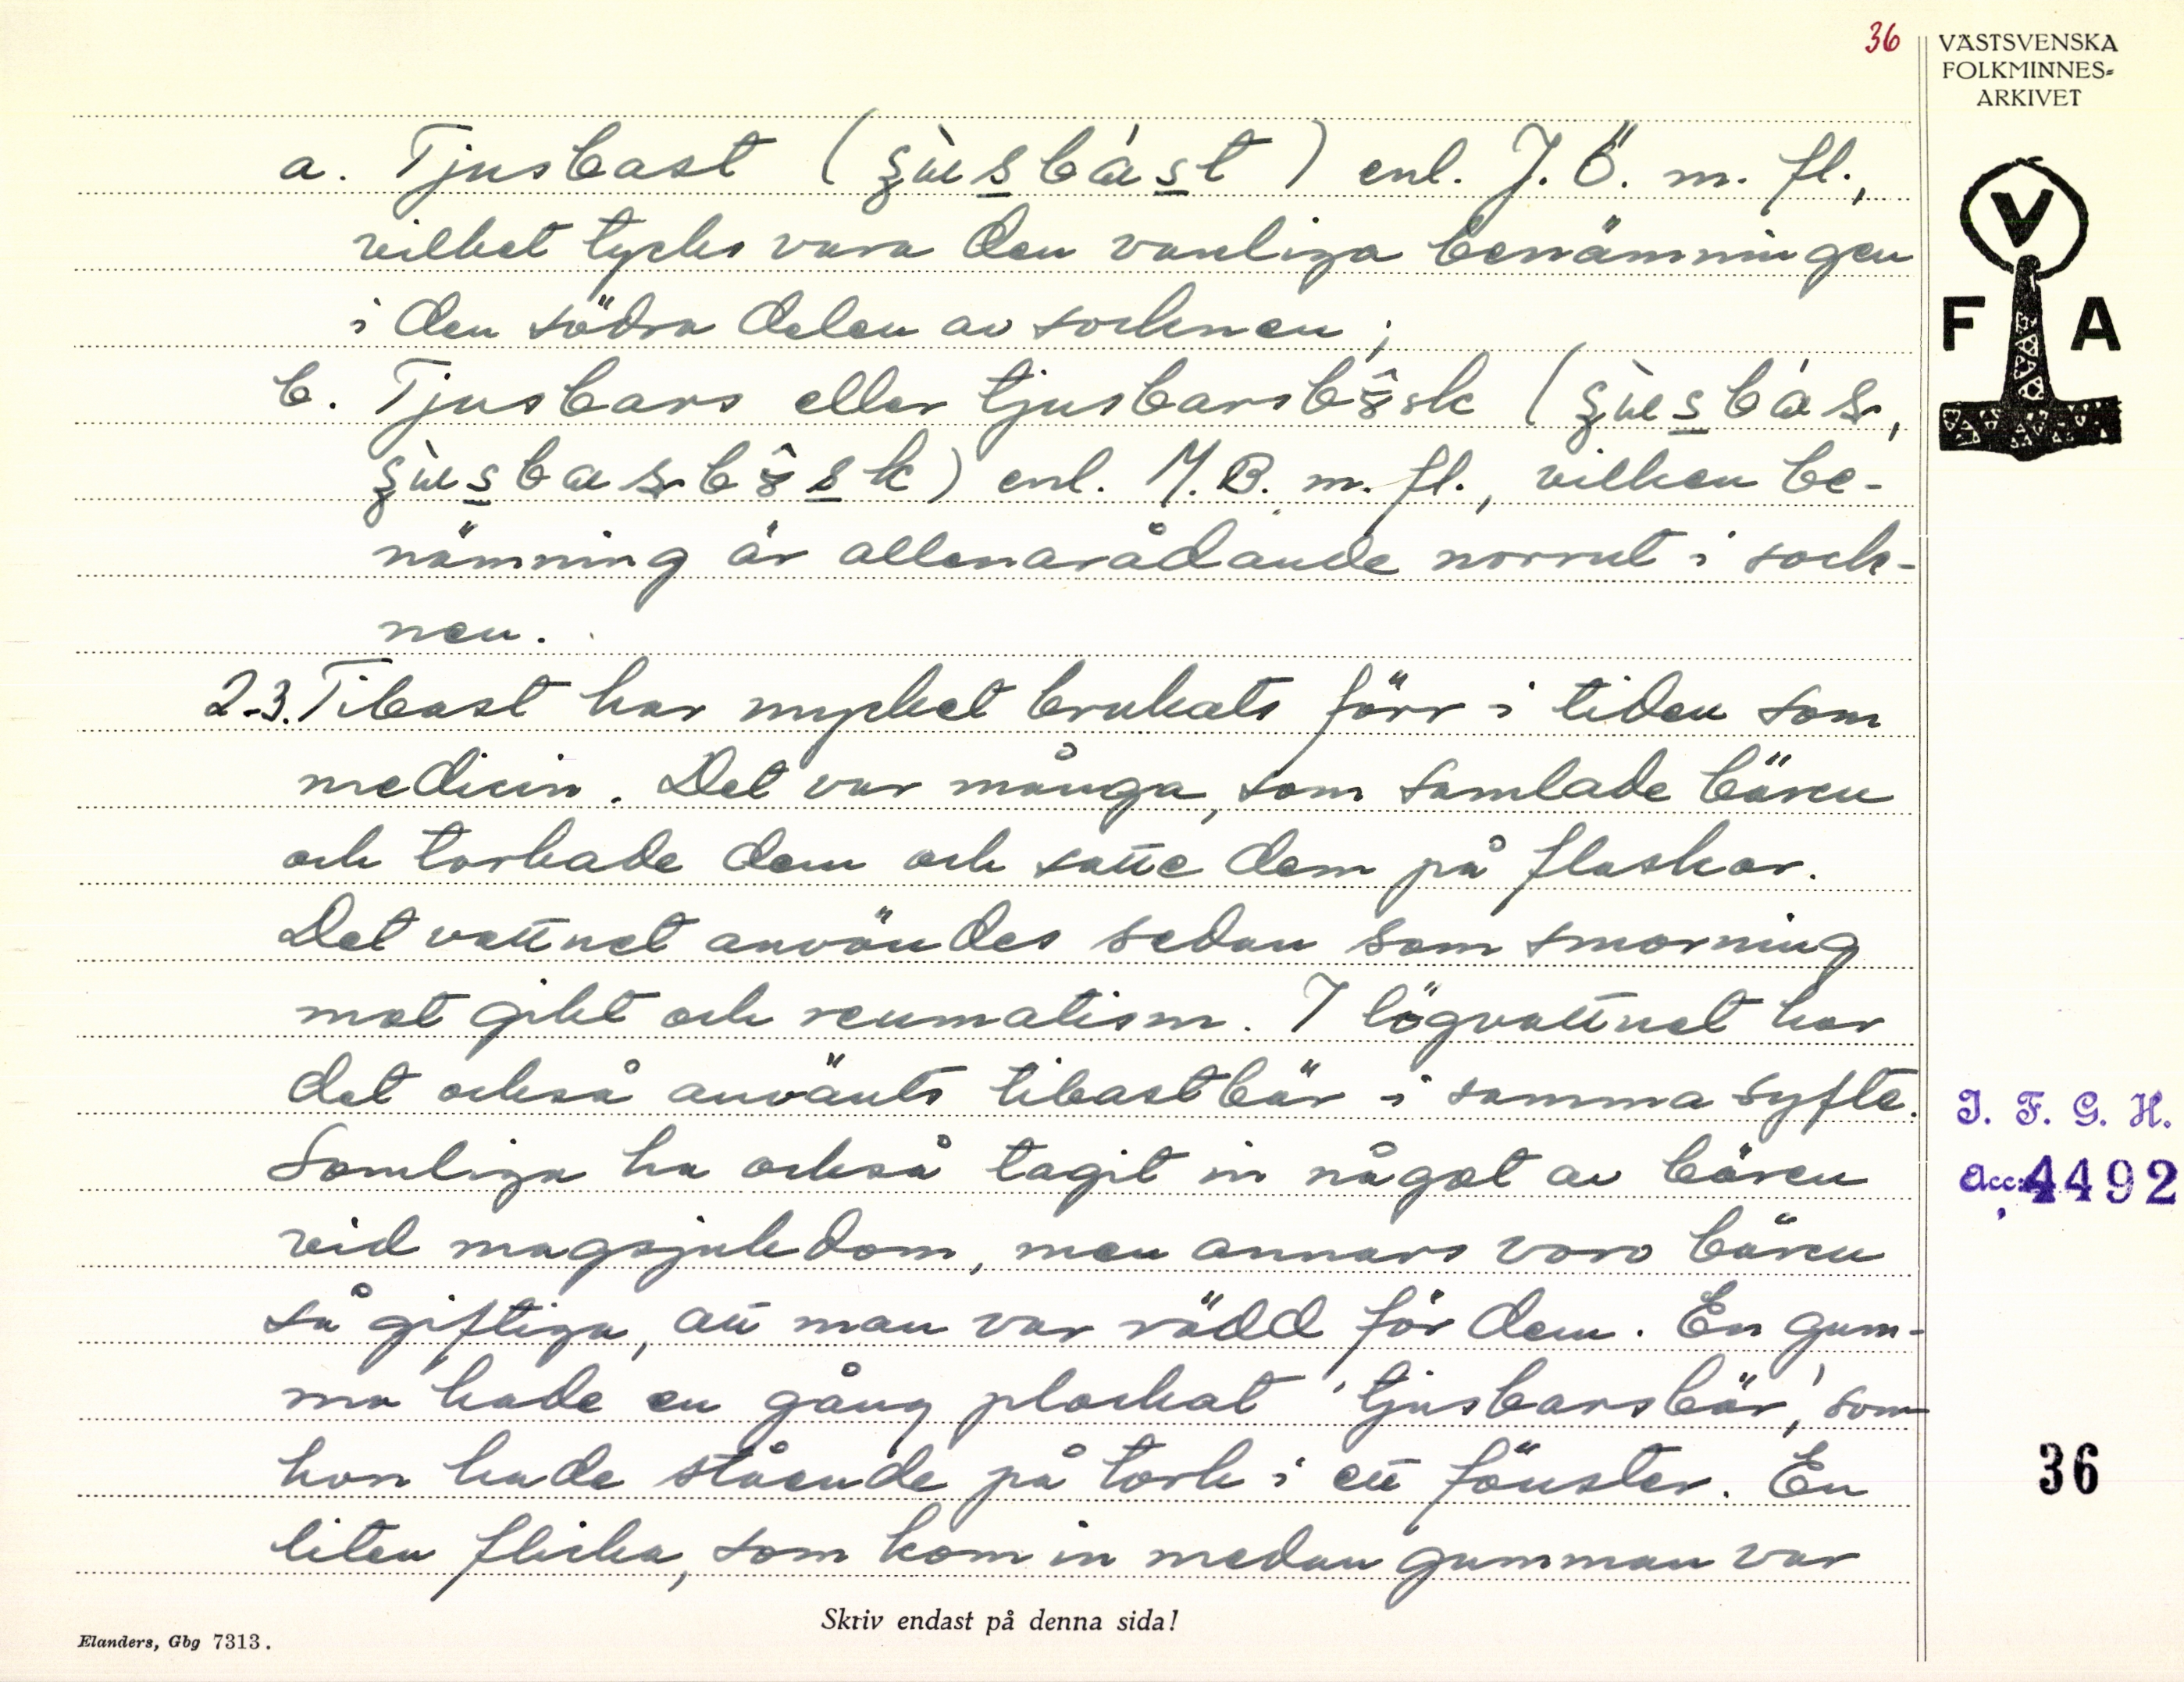 36
VÄSTSVENSKA
FOLKMINNES-
ARKIVET
V
F A
a. Tjusbast (ʂùsbást) enl. J. Ö. m. fl.,
vilket tycks vara den vanliga benämningen
i den södra delen av socknen;
b. Tjusbars eller tjusbarsbusk
enl. M. B. m. fl., vilken be-
nämning är allenarådande norrut i sock-
nen.
2-3. Tibast har mycket brukats förr i tiden som
medicin. Det var många, som samlade bären
och torkade dem och satte dem på flaskor.
Det vattnet användes sedan som smorning
mot gikt och reumatism. I lögvattnet har
det också använts tibastbär i samma syfte.
Somliga ha också tagit in något av bären
vid magsjukdom, men annars voro bären
så giftiga, att man var rädd för dem. En gum-
ma hade en gång plockat 'tjusbarsbär', som
hon hade stående på tork i ett fönster. En
liten flicka, som kom in medan gumman var
I. F. G. H.
Acc: 4492
36
Skriv endast på denna sida!
Elanders, Gbg 7313.